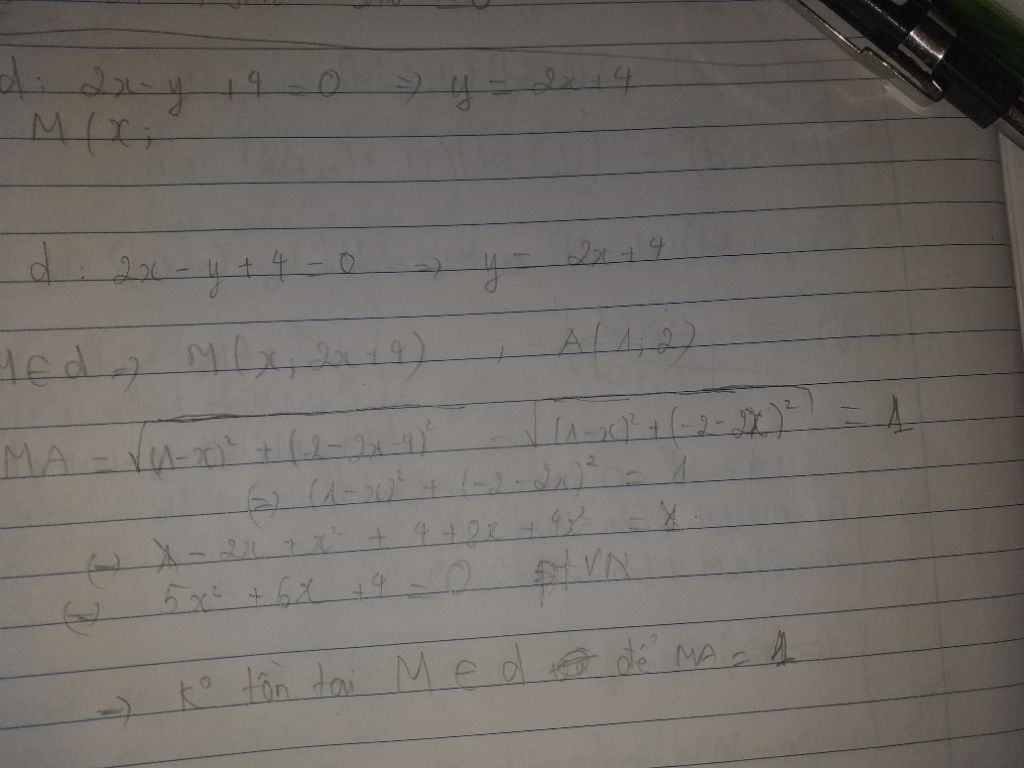 d: 2x-y+4=0 => y=2x+4
M(x;
d: 2x-y+4=0 => y= 2x+4
M∈d => M(x; 2x+4) ; A(1;2)
MA = √((1-x)²+(2-2x-4)²) = √((1-x)²+(-2-2x)²) = 1
(=) (1-x)²+(-2-2x)² = 1
(=) 1-2x+x²+4+8x+4x² = 1
(=) 5x²+6x+4=0 pt VN
=> K° tồn tại M∈d để MA=1